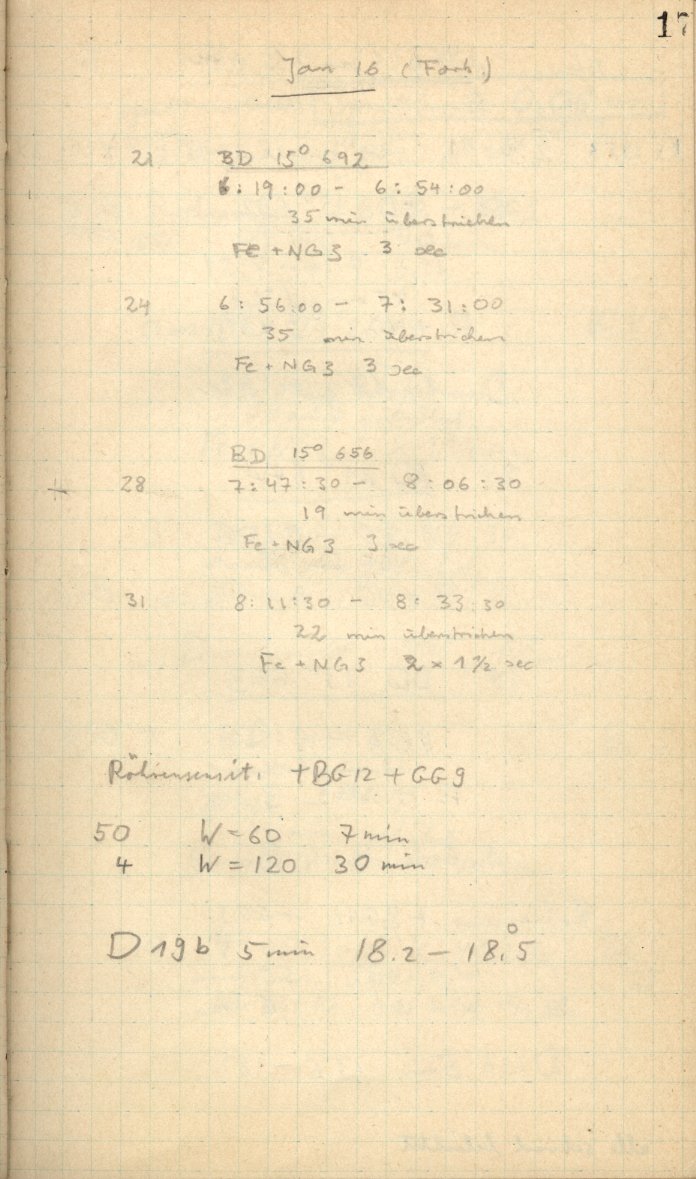 17
Jan 16 (Forts.)
21 BD 15° 692
6:19:00 - 6:54:00
35 min überstrichen
Fe + NG3 3 sec
24 6:56:00 - 7:31:00
35 min überstrichen
Fe + NG3 3 sec
BD 15° 656
+ 28 7:47:30 - 8:06:30
19 min überstrichen
Fe + NG3 3 sec
31 8:11:30 - 8:33:30
22 min überstrichen
Fe + NG3 2 × 1 1/2 sec
Röhrensensit. + BG12 + GG9
50 W = 60 7 min
4 W = 120 30 min
D 19b 5 min 18.2 - 18.°5